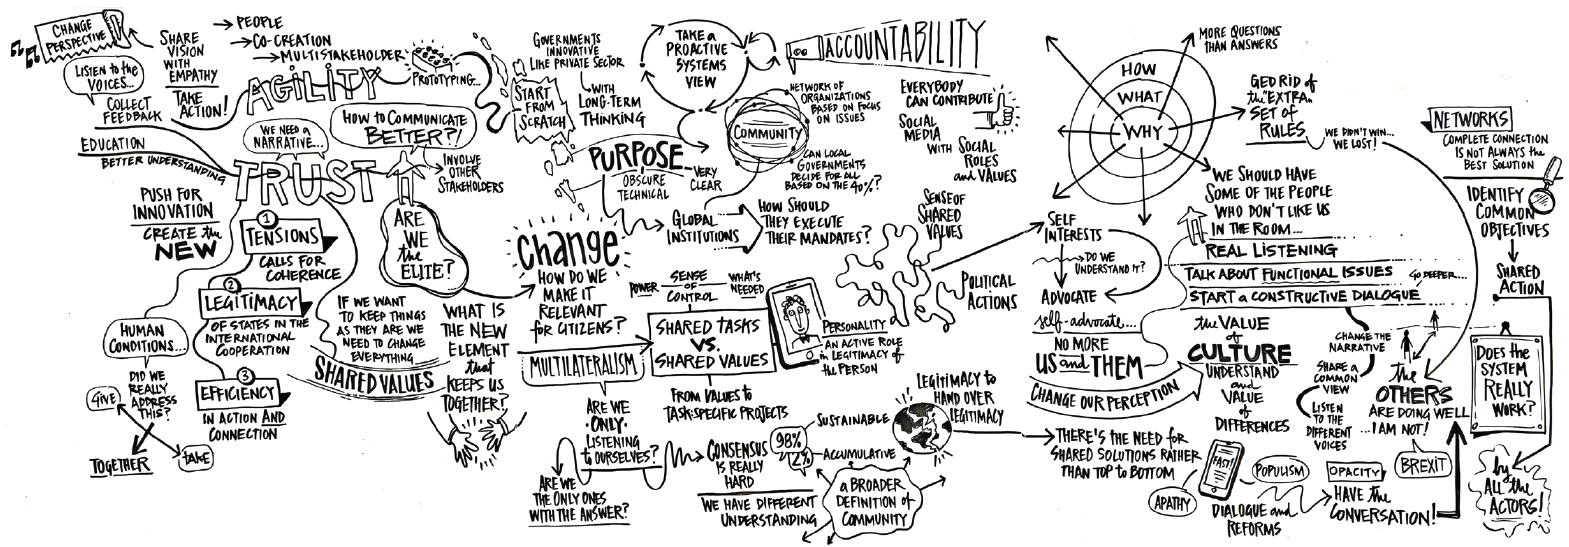 CHANGE
PERSPECTIVE
SHARE
VISION
WITH
EMPATHY
TAKE
ACTION!
PEOPLE
CO-CREATION
MULTISTAKEHOLDER
AGILITY
PROTOTYPING...
LISTEN to the
VOICES...
COLLECT
FEEDBACK
EDUCATION
BETTER UNDERSTANDING
WE NEED a
NARRATIVE...
HOW to COMMUNICATE
BETTER?!
TRUST
INVOLVE
OTHER
STAKEHOLDERS
PUSH FOR
INNOVATION
CREATE the
NEW
1
TENSIONS
CALLS FOR
COHERENCE
2
LEGITIMACY
OF STATES IN THE
INTERNATIONAL
COOPERATION
3
EFFICIENCY
IN ACTION AND
CONNECTION
HUMAN
CONDITIONS...
DID WE
REALLY
ADDRESS
THIS?
GIVE
TAKE
TOGETHER
ARE
WE
the
ELITE?
IF WE WANT
TO KEEP THINGS
AS THEY ARE WE
NEED TO CHANGE
EVERYTHING
SHARED VALUES
WHAT IS
THE NEW
ELEMENT
that
KEEPS US
TOGETHER?
START
FROM
SCRATCH
GOVERNMENTS
INNOVATIVE
LIKE PRIVATE SECTOR
WITH
LONG-TERM
THINKING
TAKE a
PROACTIVE
SYSTEMS
VIEW
PURPOSE
OBSCURE
TECHNICAL
VERY
CLEAR
COMMUNITY
NETWORK OF
ORGANIZATIONS
BASED ON FOCUS
ON ISSUES
CAN LOCAL
GOVERNMENTS
DECIDE FOR ALL
BASED ON THE 90%?
GLOBAL
INSTITUTIONS
HOW SHOULD
THEY EXECUTE
THEIR MANDATES?
ACCOUNTABILITY
EVERYBODY
CAN CONTRIBUTE
SOCIAL
MEDIA
WITH SOCIAL
ROLES
and VALUES
SENSE OF
SHARED
VALUES
POLITICAL
ACTIONS
Change
HOW DO WE
MAKE IT
RELEVANT
for CITIZENS?
MULTILATERALISM
POWER
SENSE
OF
CONTROL
WHAT'S
NEEDED
SHARED TASKS
VS.
SHARED VALUES
FROM VALUES to
TASK-SPECIFIC PROJECTS
PERSONALITY
AN ACTIVE ROLE
in LEGITIMACY of
the PERSON
ARE WE
·ONLY·
LISTENING
to OURSELVES?
ARE WE
THE ONLY ONES
WITH THE ANSWER?
CONSENSUS
IS REALLY
HARD
98%
2%
WE HAVE DIFFERENT
UNDERSTANDING
SUSTAINABLE
ACCUMULATIVE
a BROADER
DEFINITION of
COMMUNITY
LEGITIMACY to
HAND OVER
LEGITIMACY
THERE'S THE NEED for
SHARED SOLUTIONS RATHER
THAN TOP to BOTTOM
HOW
WHAT
WHY
MORE QUESTIONS
THAN ANSWERS
GED RID of
the "EXTRA"
SET of
RULES
WE DIDN'T WIN...
WE LOST!
SELF
INTERESTS
DO WE
UNDERSTAND IT?
ADVOCATE
self-advocate...
NO MORE
US and THEM
CHANGE OUR PERCEPTION
WE SHOULD HAVE
SOME OF THE PEOPLE
WHO DON'T LIKE US
IN THE ROOM...
REAL LISTENING
TALK ABOUT FUNCTIONAL ISSUES
GO DEEPER...
START a CONSTRUCTIVE DIALOGUE
the VALUE
of
CULTURE
UNDERSTAND
and
VALUE
of
DIFFERENCES
CHANGE THE
NARRATIVE
SHARE a
COMMON
VIEW
LISTEN
TO THE
DIFFERENT
VOICES
the
OTHERS
ARE DOING WELL
...I AM NOT!
BREXIT
FAST!
APATHY
POPULISM
DIALOGUE and
REFORMS
OPACITY
HAVE the
CONVERSATION!
NETWORKS
COMPLETE CONNECTION
IS NOT ALWAYS the
BEST SOLUTION
IDENTIFY
COMMON
OBJECTIVES
SHARED
ACTION
DOES the
SYSTEM
REALLY
WORK?
by
ALL the
ACTORS!